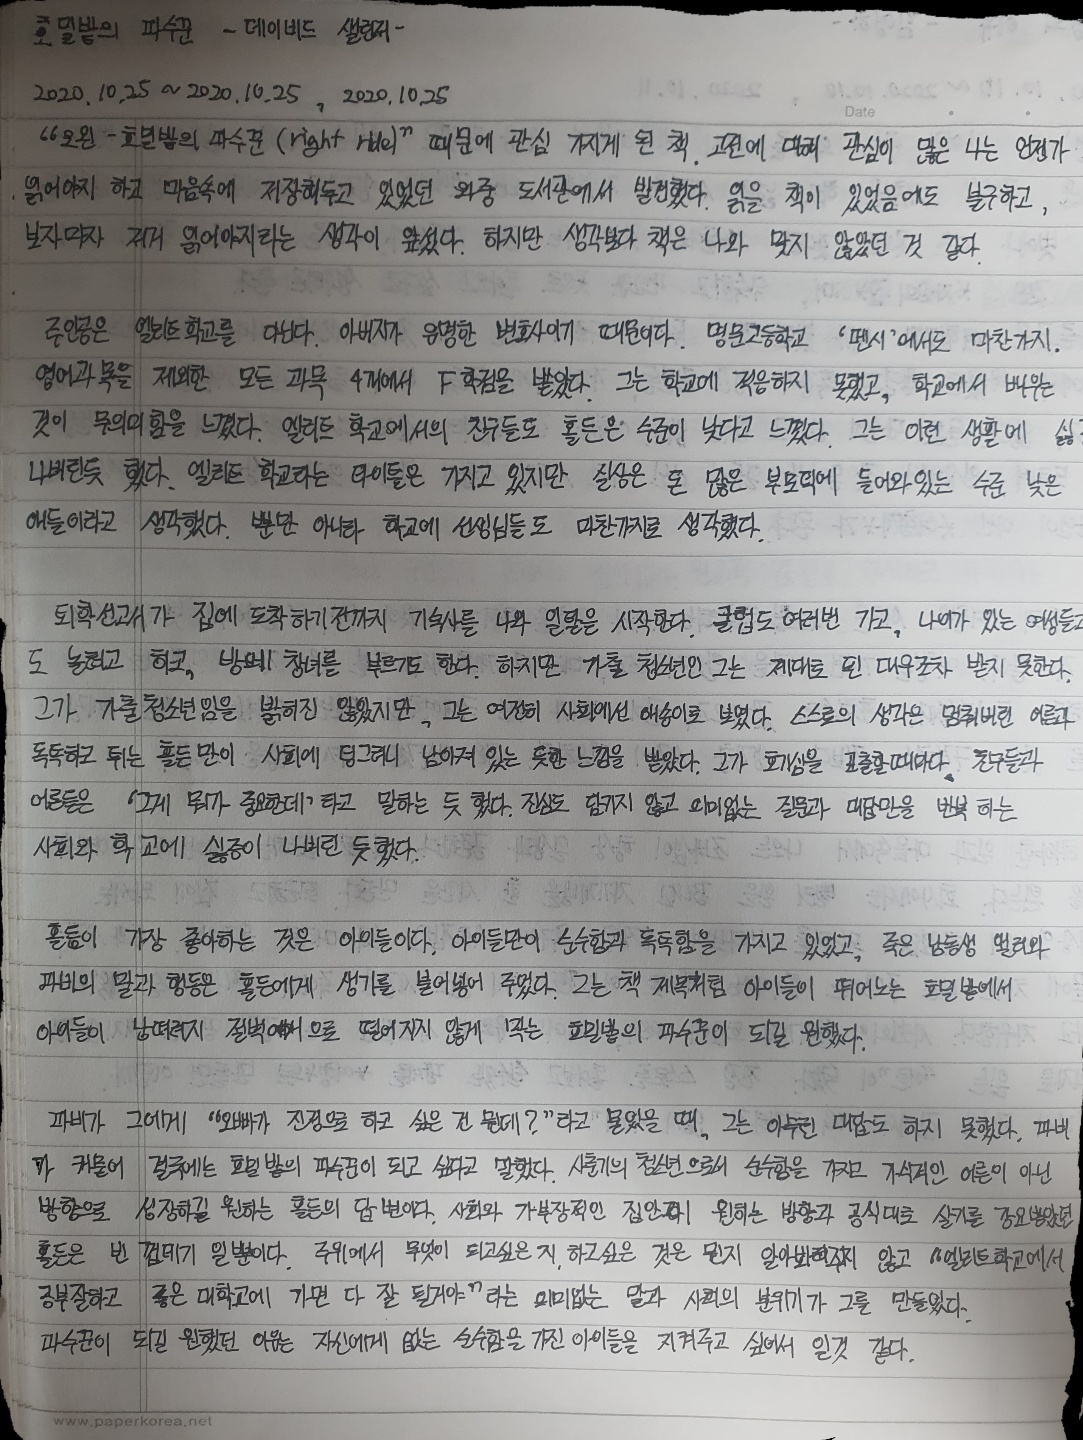 호밀밭의 파수꾼 - 데이비드 샐린저 -
2020.10.25 ~ 2020.10.25, 2020.10.25
Date
"오왼 - 호밀밭의 파수꾼 (right 때문에 관심 가지게 된 책. 고전에 대해 관심이 많은 나는 언젠가
읽어야지 하고 마음속에 저장해두고 있었던 와중 도서관에서 발견했다. 읽을 책이 있었음에도 불구하고,
보자마자 저거 읽어야지라는 생각이 앞섰다. 하지만 생각보다 책은 나와 맞지 않았던 것 같다.
주인공은 엘리트학교를 다닌다. 아버지가 유명한 변호사이기 때문이다. 명문고등학교 '펜시'에서도 마찬가지.
영어과목을 제외한 모든 과목 4개에서 F학점을 받았다. 그는 학교에 적응하지 못했고, 학교에서 배우는
것이 무의미함을 느꼈다. 엘리트 학교에서의 친구들도 홀든은 수준이 낮다고 느꼈다. 그는 이런 생활에
나버린듯 했다. 엘리트 학교라는 타이틀은 가지고 있지만 실상은 돈 많은 부모덕에 들어와있는 수준 낮은
애들이라고 생각했다. 뿐만 아니라 학교에 선생님들도 마찬가지로 생각했다.
퇴학선고서가 집에 도착하기전까지 기숙사를 나와 일탈을 시작한다. 클럽도 여러번 가고, 나이가 있는 여성들과
도 놀려고 하고, 방으로 창녀를 부르기도 한다. 하지만 가출 청소년인 그는 제대로 된 대우조차 받지 못한다.
그가 가출청소년임을 밝혀진 않았지만, 그는 여전히 사회에선 애송이로 보였다. 스스로의 생각은 멈춰버린 어른과
독특하고 튀는 홀든만이 사회에 덩그러니 남아져 있는 듯한 느낌을 받았다. 그가 호기심을 표출할때마다, 친구들과
어른들은 '그게 뭐가 중요한데'라고 말하는 듯 했다. 진심도 담기지 않고 의미없는 질문과 대답만을 반복 하는
사회와 학교에 싫증이 나버린 듯했다.
홀든이 가장 좋아하는 것은 아이들이다. 아이들만이 순수함과 독특함을 가지고 있었고, 죽은 남동생 앨리와
피비의 말과 행동은 홀든에게 생기를 불어넣어 주었다. 그는 책 제목처럼 아이들이 뛰어노는 호밀밭에서
아이들이 낭떠러지 절벽으로 떨어지지 않게 막는 호밀밭의 파수꾼이 되길 원했다.
피비가 그에게 "오빠가 진정으로 하고 싶은 건 뭔데?"라고 물었을 때, 그는 아무런 대답도 하지 못했다. 피비
가 캐물어 결국에는 호밀밭의 파수꾼이 되고 싶다고 말했다. 사춘기의 청소년으로서 순수함을 가지고 가식적인 어른이 아닌
방향으로 성장하길 원하는 홀든의 답변이다. 사회와 가부장적인 집안이 원하는 방향과 공식대로 살기를 강요받았던
홀든은 빈 껍데기 일뿐이다. 주위에서 무엇이 되고싶은지, 하고싶은 것은 뭔지 알아봐주지 않고 "엘리트학교에서
공부잘하고 좋은 대학교에 가면 다 잘 될거야"라는 의미없는 말과 사회의 분위기가 그를 만들었다.
파수꾼이 되길 원했던 이유는 자신에게 없는 순수함을 가진 아이들을 지켜주고 싶어서 일것 같다.
www.paperkorea.net